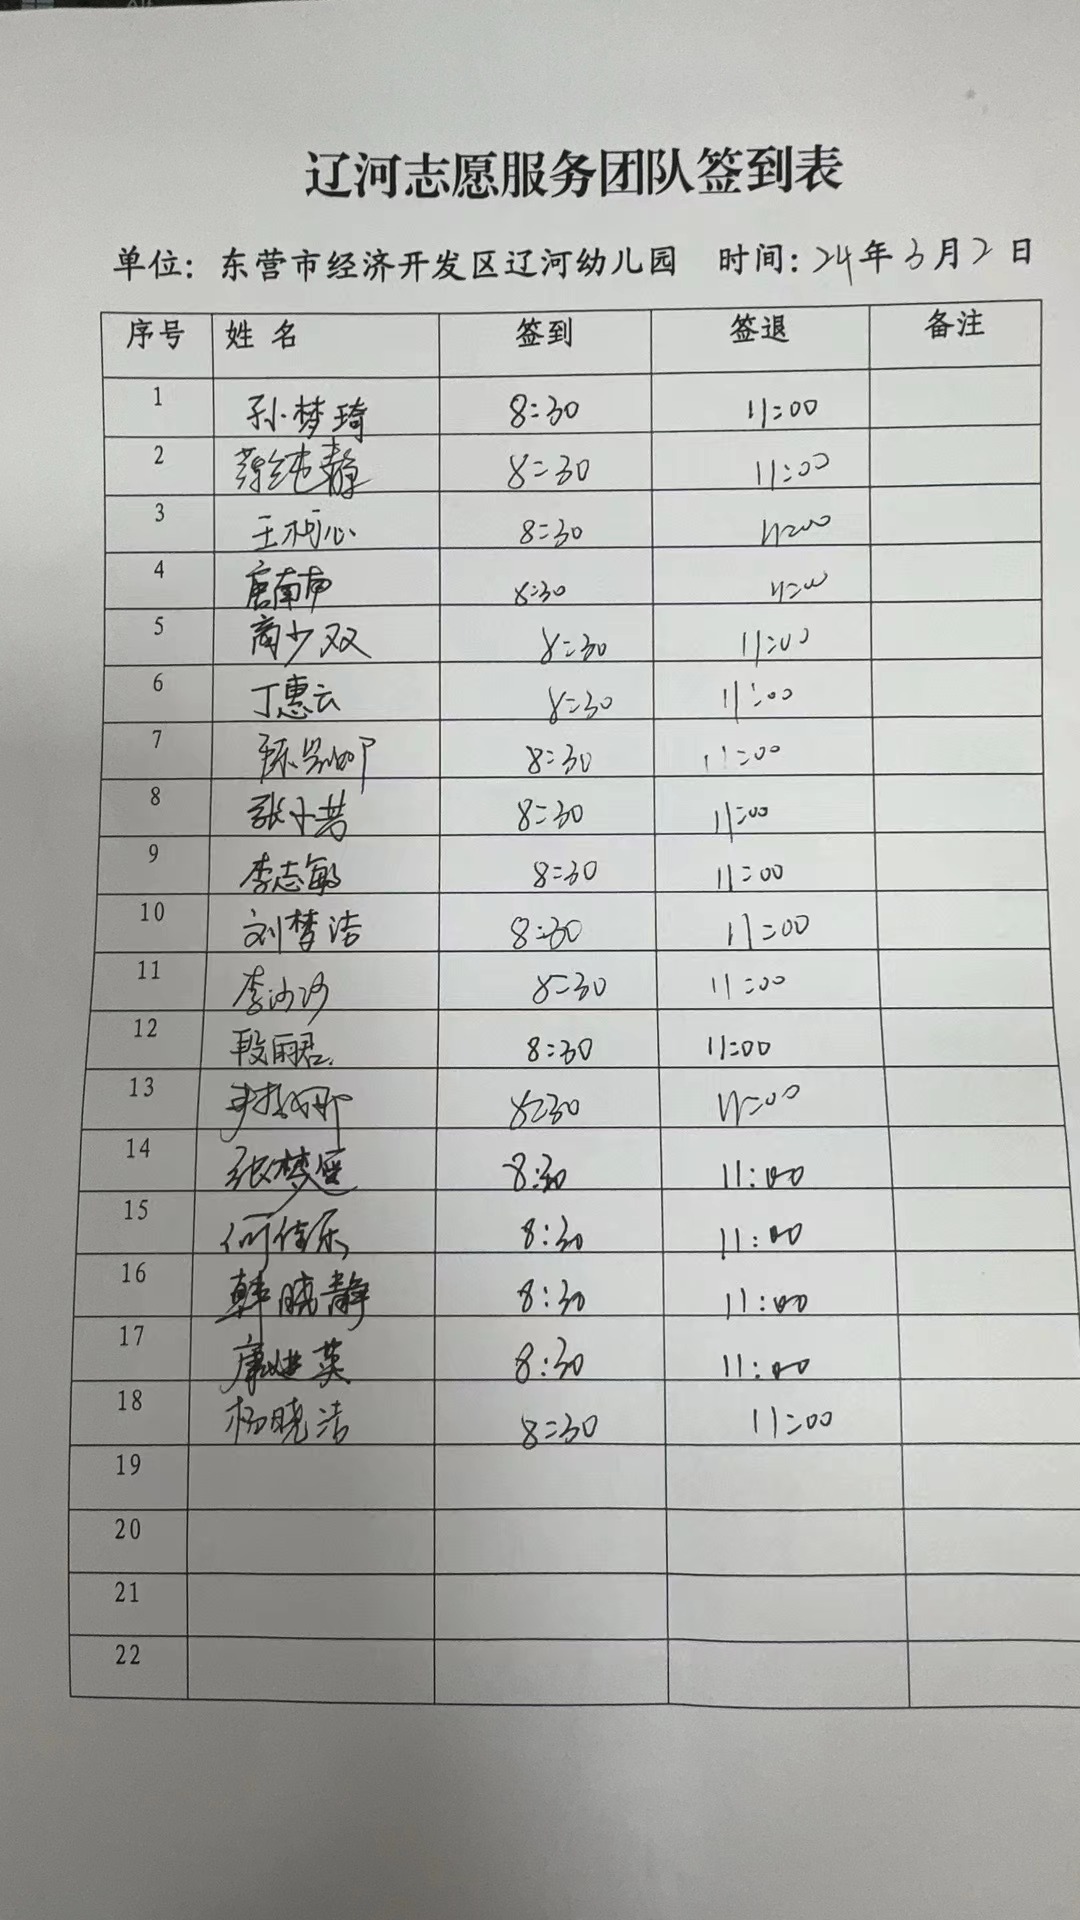 辽河志愿服务团队签到表
单位：东营市经济开发区辽河幼儿园 时间：24年3月2日
序号 姓 名 签到 签退 备注
1 孙梦琦 8:30 11:00
2 8:30 11:00
3 王柯心 8:30 11:00
4 唐南 8:30 11:00
5 商少双 8:30 11:00
6 丁惠云 8:30 11:00
7 8:30 11:00
8 张小芸 8:30 11:00
9 李志敏 8:30 11:00
10 刘梦洁 8:30 11:00
11 李沙沙 8:30 11:00
12 段雨君 8:30 11:00
13 8:30 11:00
14 张梦瑶 8:30 11:00
15 何佳乐 8:30 11:00
16 韩晓静 8:30 11:00
17 康进英 8:30 11:00
18 杨晓洁 8:30 11:00
19
20
21
22